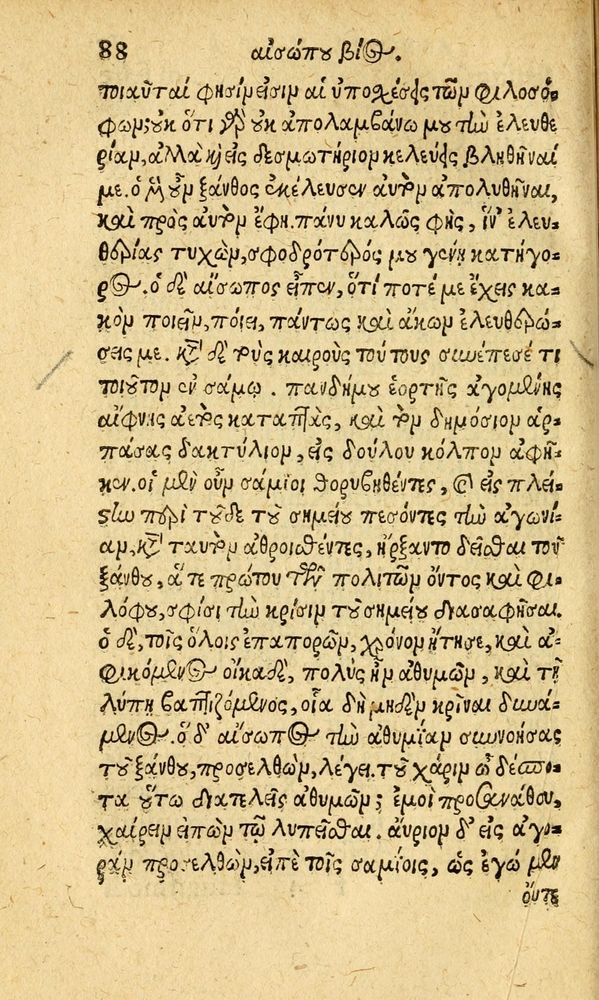 88 αἰσώπου βίος.
τοιαῦταί φησίν εἰσιν αἱ ὑποσχέσεις τῶν φιλοσό-
φων; οὐκ ὅτι γὰρ οὐκ ἀπολαμβάνω μου τὴν ἐλευθε
ρίαν, ἀλλὰ καὶ εἰς δεσμωτήριον κελεύεις βληθῆναί
με. ὁ μὲν οὖν ξάνθος ἐκέλευσεν αὐτὸν ἀπολυθῆναι,
καὶ πρὸς αὐτὸν ἔφη. πάνυ καλῶς φῂς, ἵν' ἐλευ-
θερίας τυχὼν, σφοδρότερός μου γένῃ κατήγο-
ρος. ὁ δὲ αἴσωπος εἶπεν, ὅτι ποτέ με ἔχεις κα-
κὸν ποιεῖν, ποίει, πάντως καὶ ἄκων ἐλευθερώ-
σεις με. κατὰ δὲ τοὺς καιροὺς τούτους συνέπεσέ τι
τοιοῦτον ἐν σάμῳ. πανδήμου ἑορτῆς ἀγομένης
αἴφνης ἀετὸς καταπτὰς, καὶ τὸν δημόσιον ἁρ-
πάσας δακτύλιον, εἰς δούλου κόλπον ἀφῆ-
κεν. οἱ μὲν οὖν σάμιοι θορυβηθέντες, καὶ εἰς πλεί-
στην περὶ τοῦδε τοῦ σημείου πεσόντες τὴν ἀγωνί-
αν, κατὰ ταυτὸν ἀθροισθέντες, ἤρξαντο δεῖσθαι τοῦ
ξάνθου, ἅτε πρώτου τῶν πολιτῶν ὄντος καὶ φι-
λόφου, σφίσι τὴν κρίσιν τοῦ σημείου διασαφῆσαι.
ὁ δὲ, τοῖς ὅλοις ἐπαπορῶν, χρόνον ᾔτησε, καὶ ἀ-
φικόμενος οἴκαδε, πολὺς ἦν ἀθυμῶν, καὶ τῇ
λύπῃ βαπτιζόμενος, οἷα δὴ μηδὲν κρῖναι δυνά-
μενος. ὁ δ' αἴσωπος τὴν ἀθυμίαν συννοήσας
τοῦ ξάνθου, προσελθὼν, λέγει. τοῦ χάριν ὦ δέσπο-
τα οὕτω διατελεῖς ἀθυμῶν; ἐμοὶ προσανάθου,
χαίρειν εἰπὼν τῷ λυπεῖσθαι. αὔριον δ' εἰς ἀγο-
ρὰν προσελθὼν, εἰπὲ τοῖς σαμίοις, ὡς ἐγὼ μὲν
οὔτε